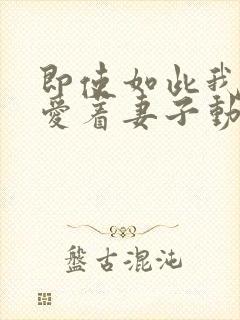 即使如此我
愛着妻子動
盤古混沌